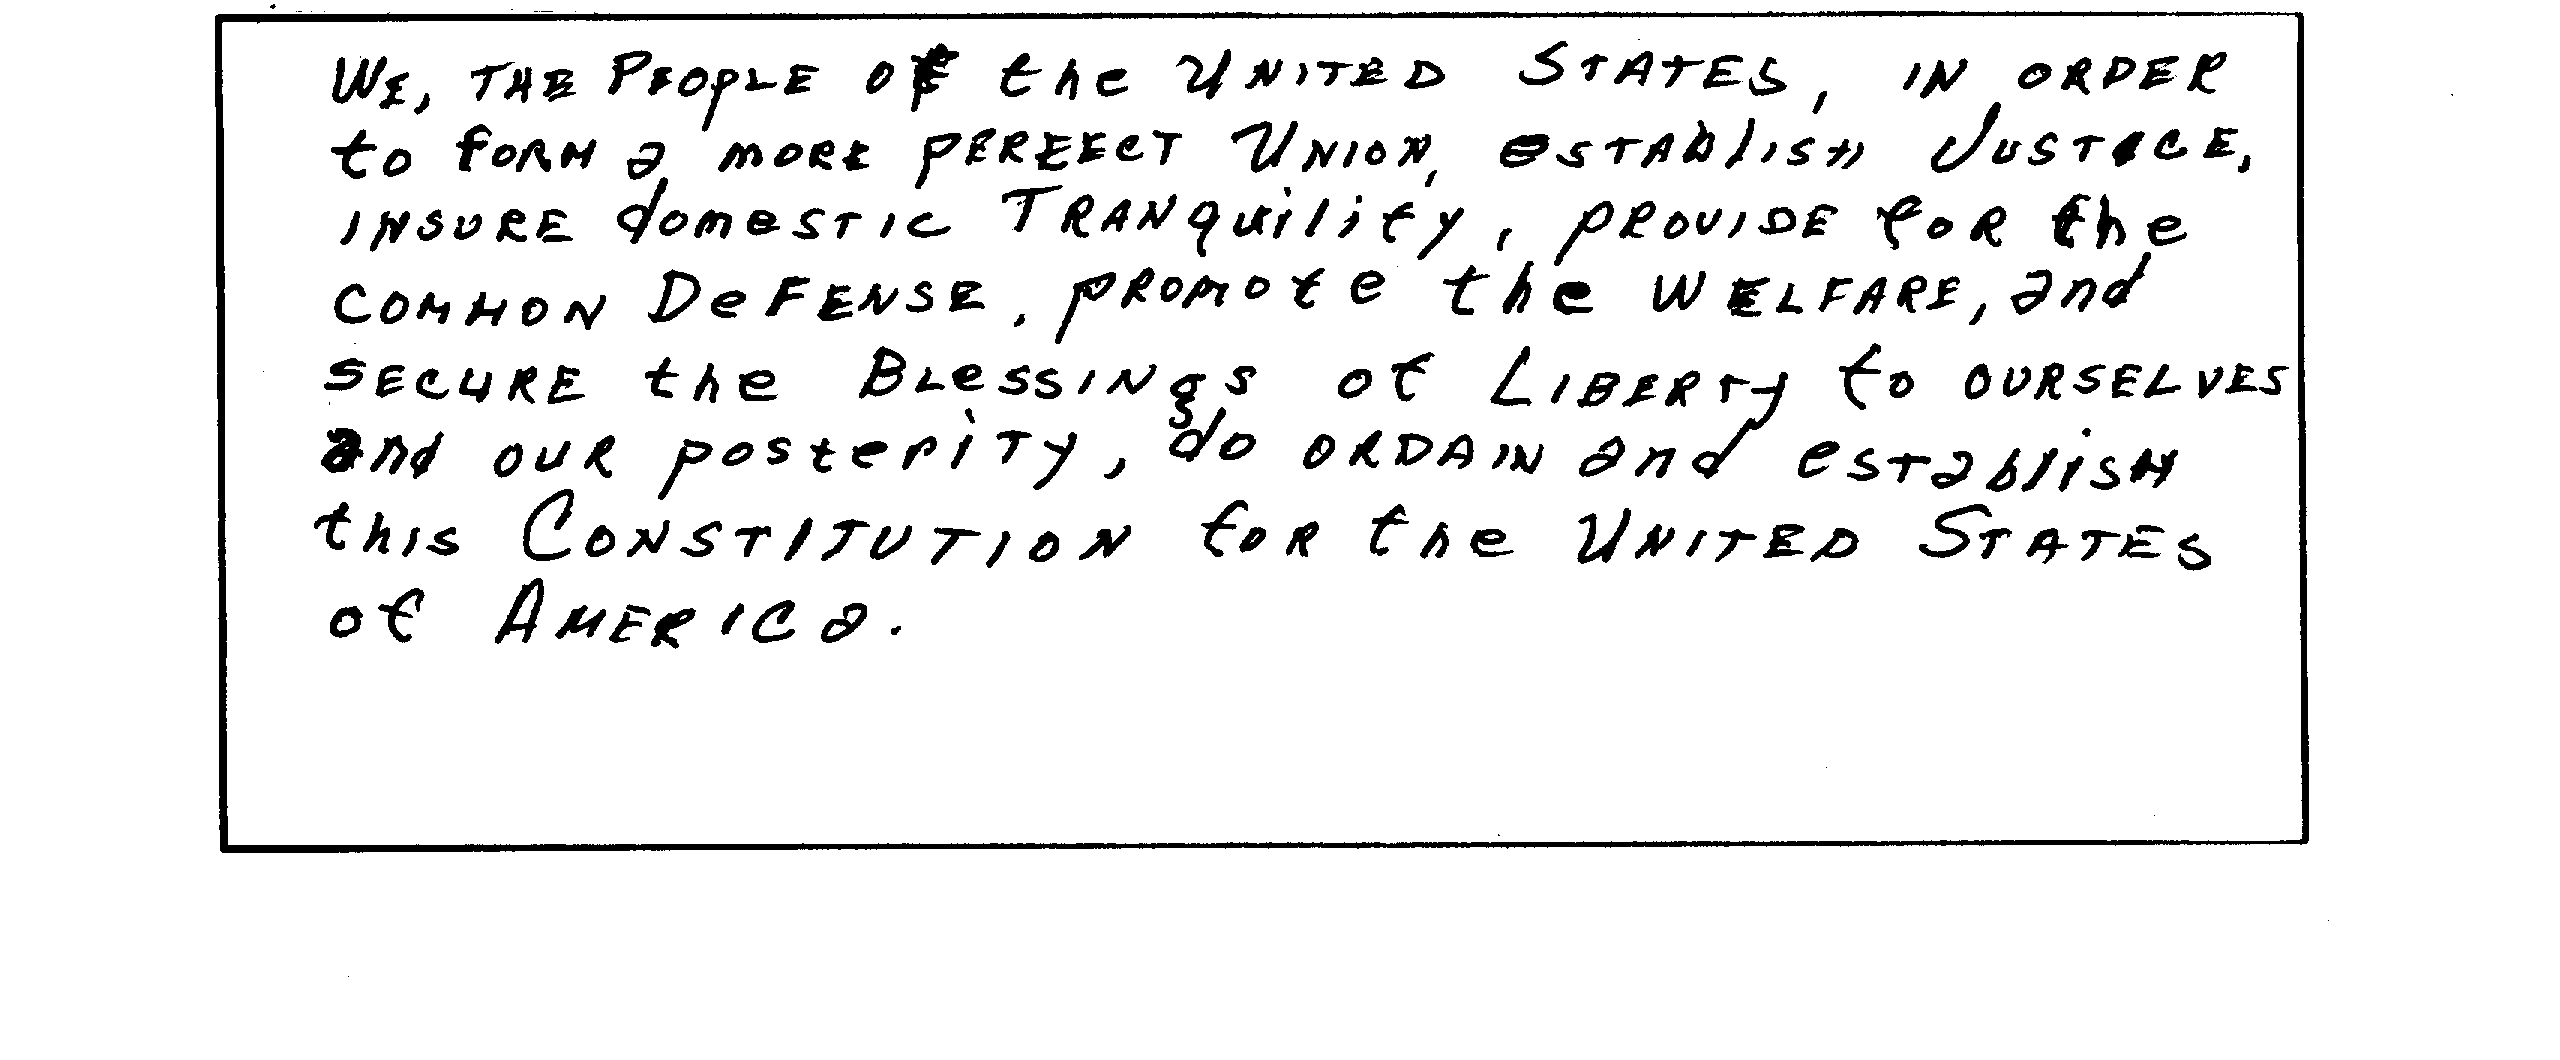 WE, THE PEOPLE of the UNITED STATES, IN ORDER
to FORM a MORE PERFECT UNION, ESTABLISH JUSTICE,
INSURE domESTIC TRANquility, PROVIDE FOR the
COMMON DeFENSE, PROMOTE the WELFARE, and
SECURE the BLeSSINgS of LIBERTy to OURSELVES
and OUR posteriTy, do ORDAIN and eSTablisH
this CONSTITUTION FOR the UNITED STATES
of AMERICa.